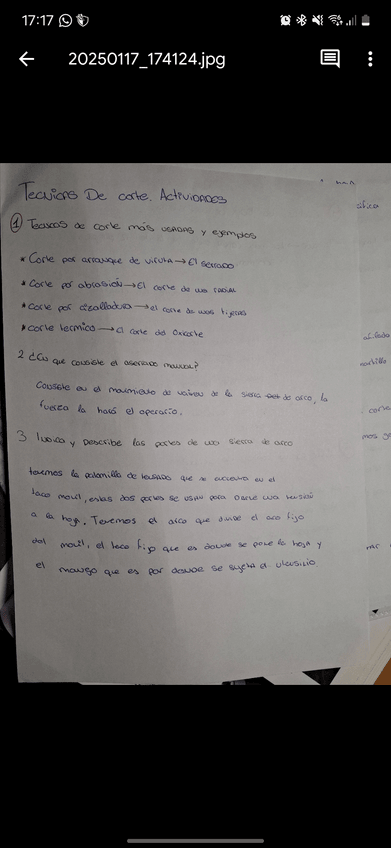 17:17
20250117_174124.jpg
Tecnicas De corte. Actividades
1 Tecnicas de corte más usadas y ejemplos
* Corte por arranque de viruta → El serrado
* Corte por abrasión → El corte de una radial
* Corte por cizalladura → el corte de unas tijeras
* corte termico → el corte del Oxicorte
2 ¿En que consiste el aserrado manual?
Consiste en el movimiento de vaiven de la sierra de arco, la
fuerza la hará el operario.
3 Indica y Describe las partes de una sierra de arco
tenemos la palomilla de tensado que se acciona en el
taco movil, estas dos partes se usan para darle una tensión
a la hoja. Tenemos el arco que divide el taco fijo
del movil, el taco fijo que es donde se pone la hoja y
el mango que es por donde se sujeta el utensilio